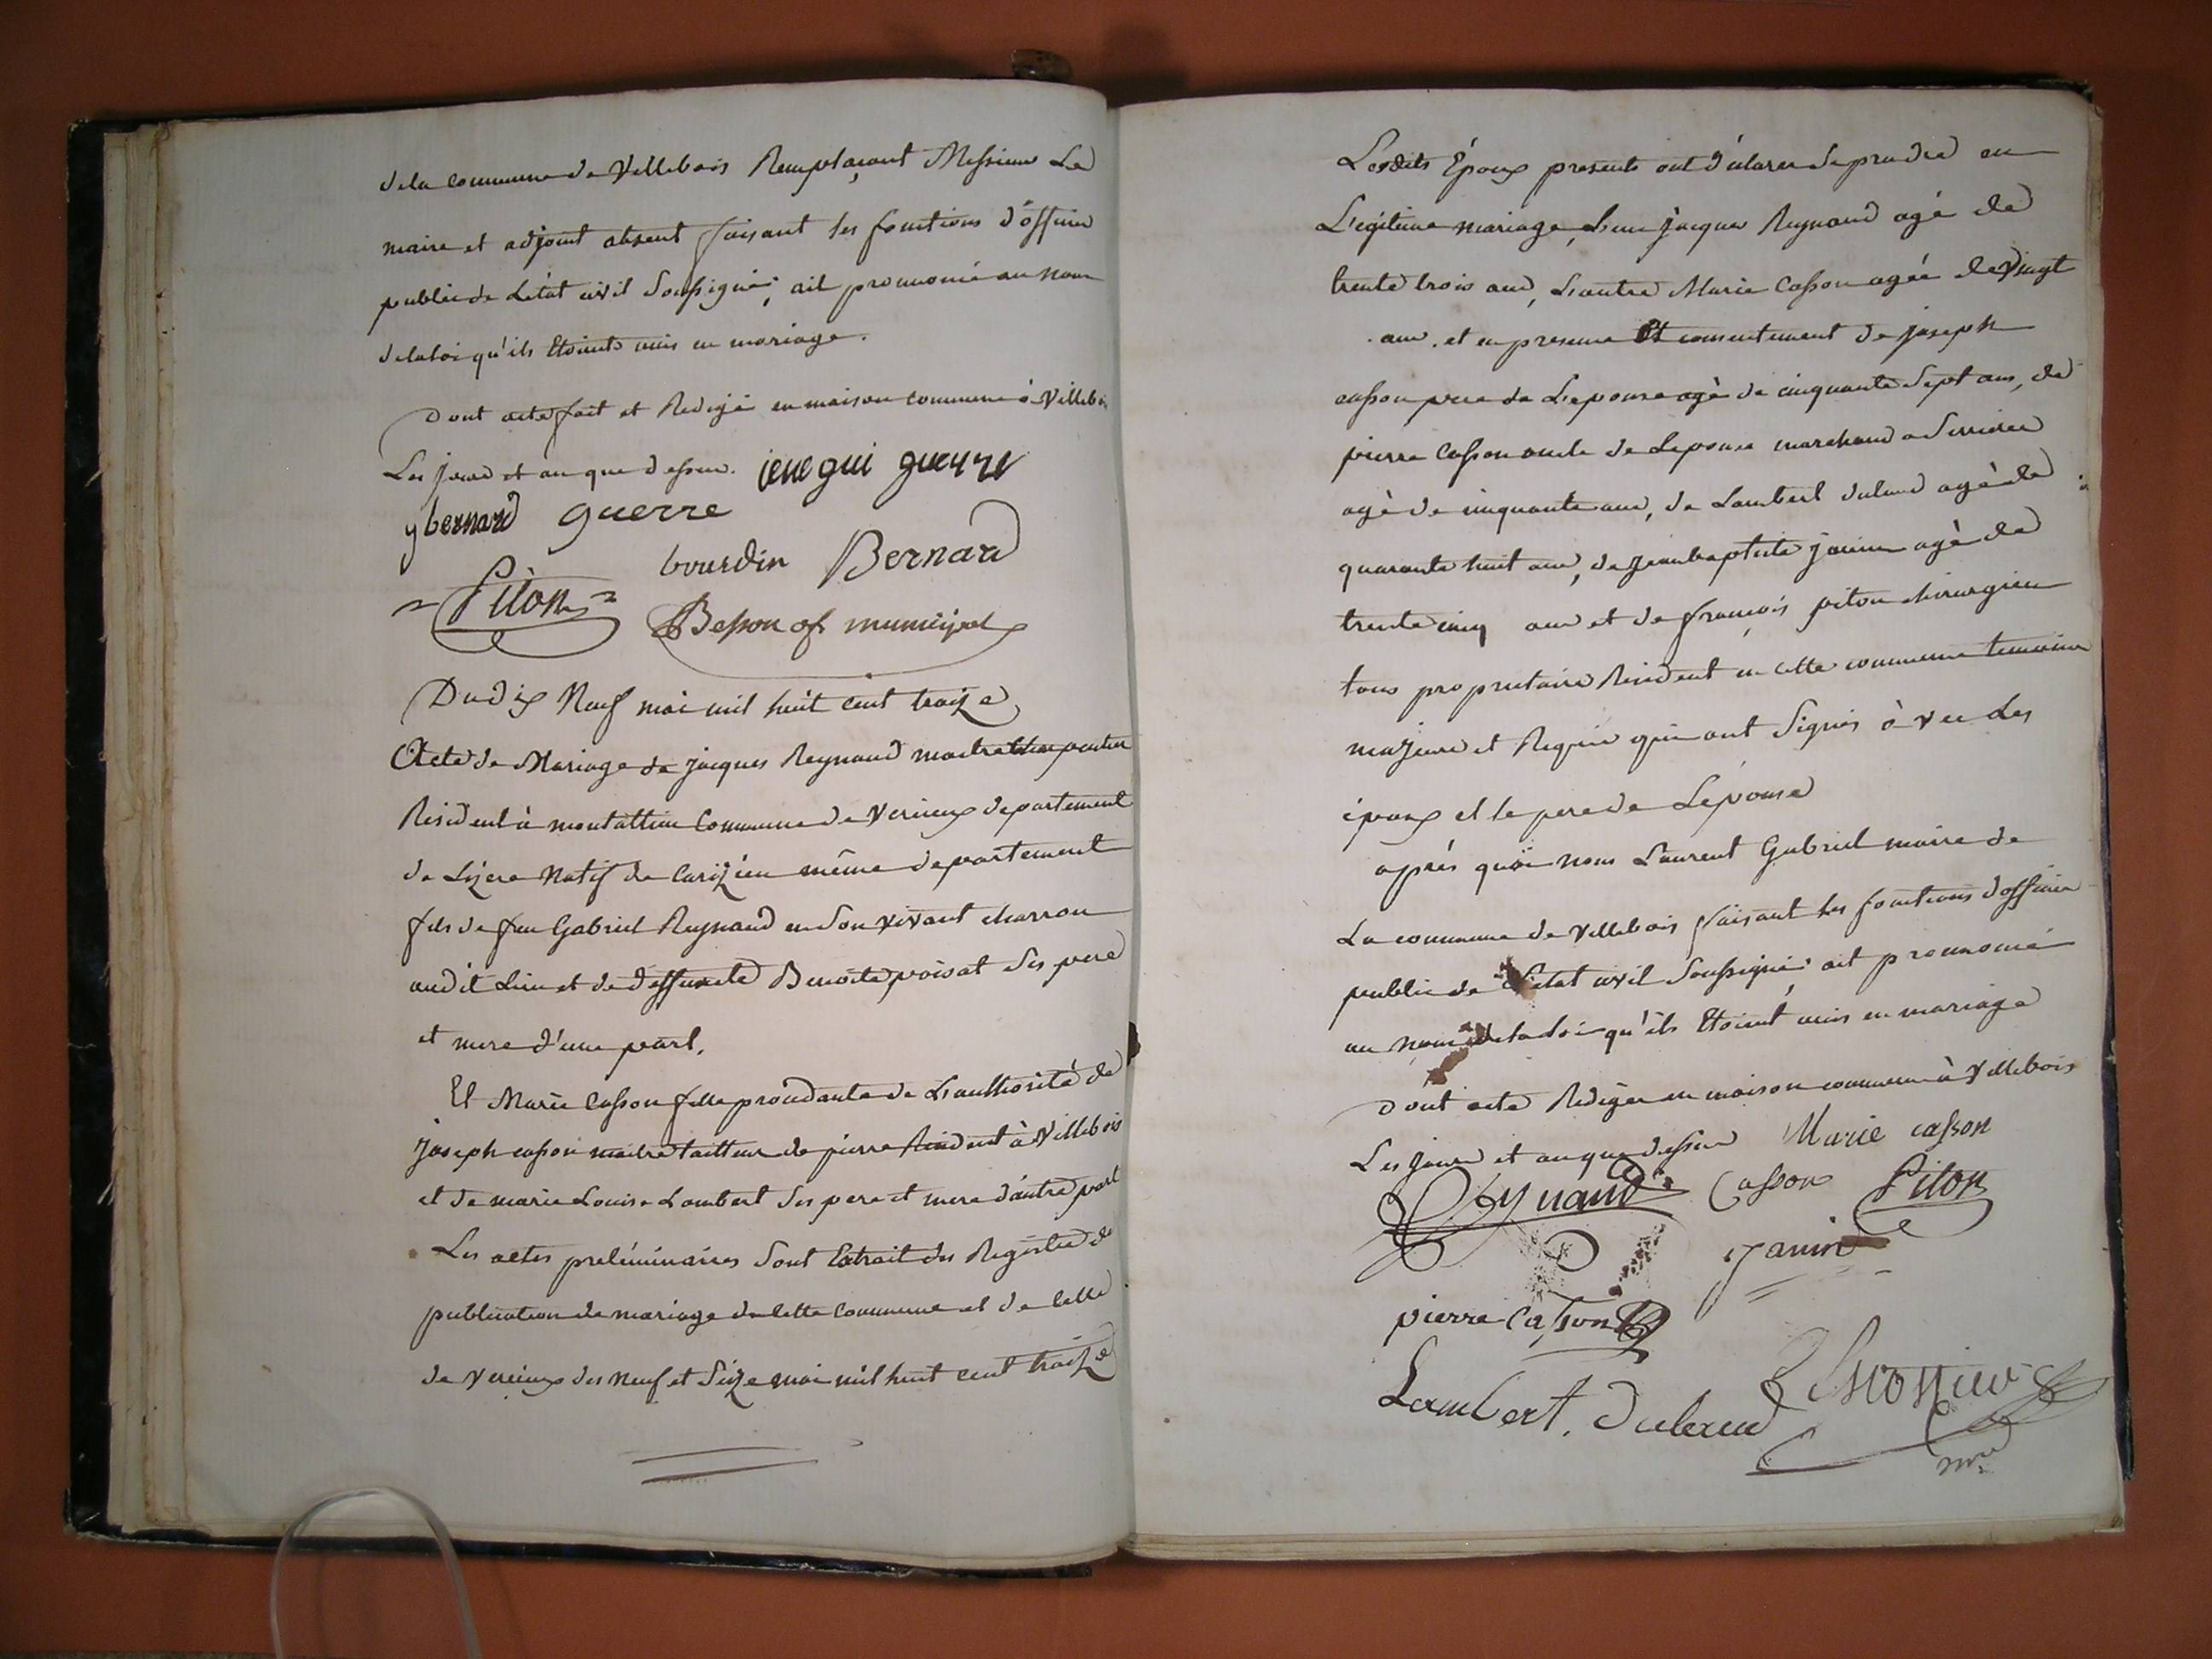 de la commune de Villebois Remplaçant Messieur Le
maire et adjoint absent faisant les fonctions d'officier
public de L'état civil Soussigné; ait prononcé au nom
de la loi qu'ils Etoints unis en mariage.
Dont acte fait et Redigé en maison commune à Villebois
Les jour et an que dessus. guerre
y bernard guerre
bourdin Bernard
Piton
Besson of municipal
Du dix Neuf mai mil huit cent traize
Acte de Mariage de jacques Reynaud maitre
Resident à commune de Verieux departement
de Lizere Natif de même departement
fils de feu Gabriel Reynaud en Son vivant charron
audit Lieu et de deffuncte Benoite poisat Ses pere
et mere d'une part,
Et Marie Casson fille de L'authorité de
joseph casson maitre tailleur de pierre Resident à Villebois
et de marie Louise Lambert Ses pere et mere d'autre part
Les actes preliminaires Sont Extrait des Registre de
publication de mariage de Cette Commune et de Celle
de Verieux des neuf et Seize mai mil huit cent traize
Lesdits Époux presents ont déclarer de prendre en
Légitime mariage, L'un jacques Reynaud agé de
trente trois ans, L'autre Marie Casson agée de Vingt
ans. et en presence Et consentement de joseph
casson pere de L'epouse agè de cinquante Sept ans, de
pierre Casson oncle de Lepouse marchand a Serrieres
agè de cinquante ans, de Lambert dulaud agè de
quarante huit ans, de jean baptiste janin agè de
trente cinq ans et de françois piton chirurgien
tous proprietaire Resident en cette commune temoins
majeurs et Requis qui ont Signés àvec Les
époux et le pere de Lépouse
après quoi nous Laurent Gabriel maire de
La commune de Villebois faisant les fonctions d'officier
public de L'état civil Soussigné; ait prononcé
au nom de la loi qu'ils Etoient unis en mariage
dont acte Rediger en maison commune à Villebois
Les jour et an que dessus Marie casson
Reynaud Casson Piton
Janin
pierre Casson
Lambert. dulaud
mre